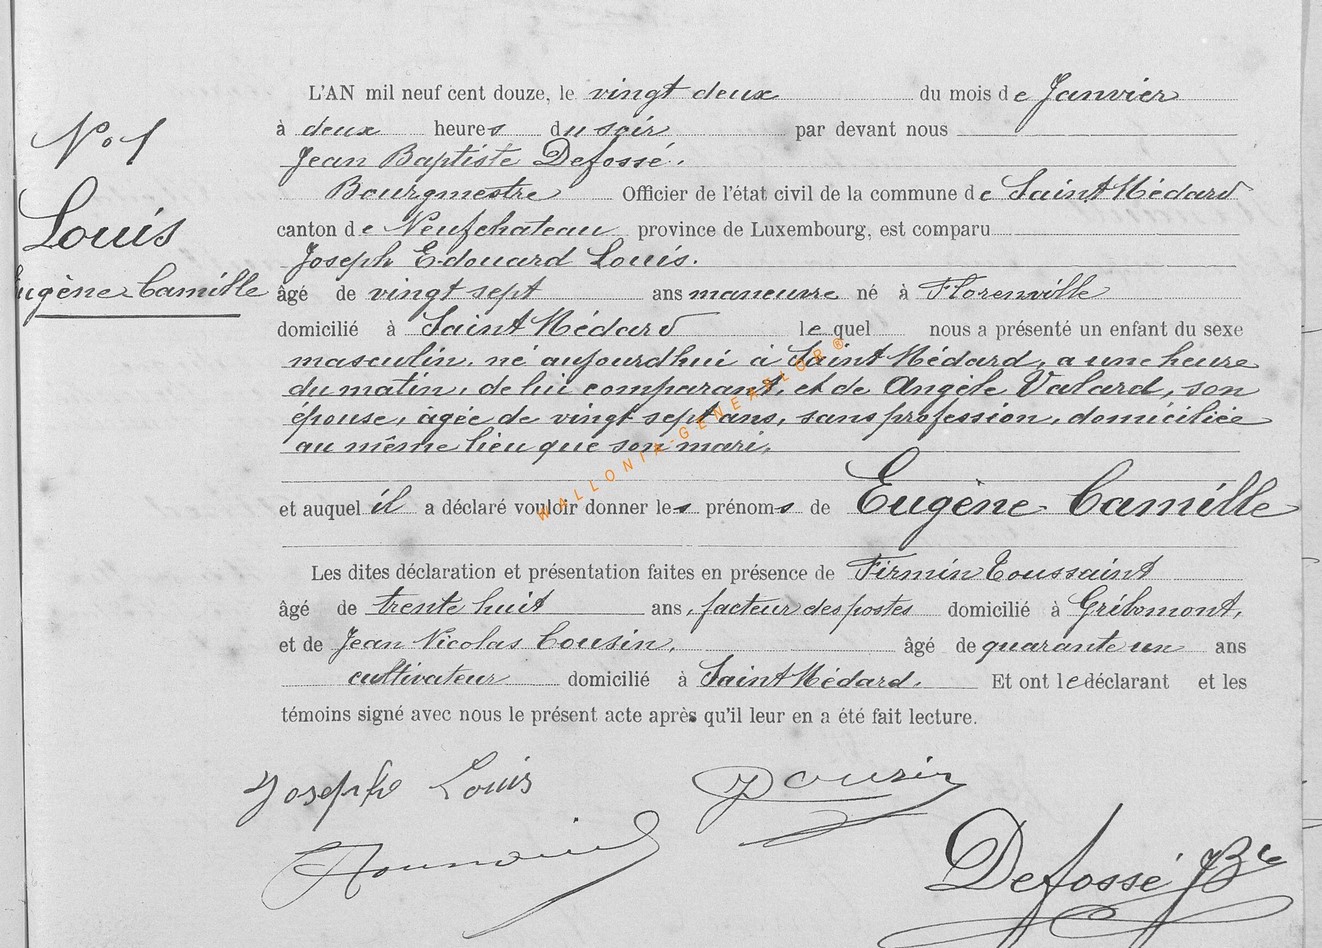 N° 1
Louis
Eugène Camille
L'AN mil neuf cent douze, le vingt deux du mois de Janvier
à deux heures du soir par devant nous
Jean Baptiste Defossé.
Bourgmestre Officier de l'état civil de la commune de Saint Médard
canton de Neufchateau province de Luxembourg, est comparu
Joseph Edouard Louis.
âgé de vingt sept ans maneuvre né à Florenville
domicilié à Saint Médard lequel nous a présenté un enfant du sexe
masculin, né aujourdhui à Saint Médard, a une heure
du matin, de lui comparant, et de Angèle Valard, son
épouse, âgée de vingt sept ans, sans profession, domiciliée
au même lieu que son mari.
et auquel il a déclaré vouloir donner les prénoms de Eugène Camille
Les dites déclaration et présentation faites en présence de Firmin Toussaint
âgé de trente huit ans, facteur des postes domicilié à Gribomont,
et de Jean Nicolas Cousin, âgé de quarante un ans
cultivateur domicilié à Saint Médard. Et ont le déclarant et les
témoins signé avec nous le présent acte après qu'il leur en a été fait lecture.
Josephe Louis
Cousin
Toussaint
Defossé JBte
WALLONIA-GENEASLOR®